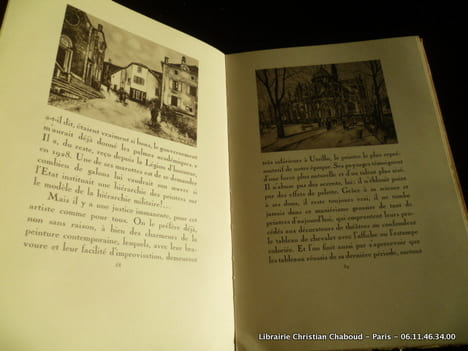 a-t-il dit, étaient vraiment si bons, le gouvernement
m'aurait déjà donné les palmes académiques. »
Il a, du reste, reçu depuis la Légion d'honneur,
en 1928. Une de ses marottes est de se demander
combien de galons lui vaudrait son œuvre si
l'Etat instituait une hiérarchie des peintres sur
le modèle de la hiérarchie militaire!...
Mais il y a une justice immanente, pour cet
artiste comme pour tous. On le préfère déjà,
non sans raison, à bien des charmeurs de la
peinture contemporaine, lesquels, avec leur bra-
voure et leur facilité d'improvisation, demeurent
très inférieurs à Utrillo, le peintre le plus repré-
sentatif de notre époque. Ses paysages témoignent
d'une force plus naturelle et d'un talent plus sûr.
Il n'abuse pas des accents, lui; il n'éblouit point
par des effets de pilotte. Grâce à sa science et
à ses dons, il reste toujours vrai, il ne tombe
jamais dans ce maniérisme gonneux de tant de
peintres d'aujourd'hui, qui empruntent leurs pro-
cédés aux décorateurs de théâtres ou confondent
le tableau de chevalet avec l'affiche ou l'estampe
coloriée. Et l'on finit aussi par s'apercevoir que
les tableaux réussis de sa dernière période, surtout
Librairie Christian Chaboud - Paris - 06.11.46.34.00